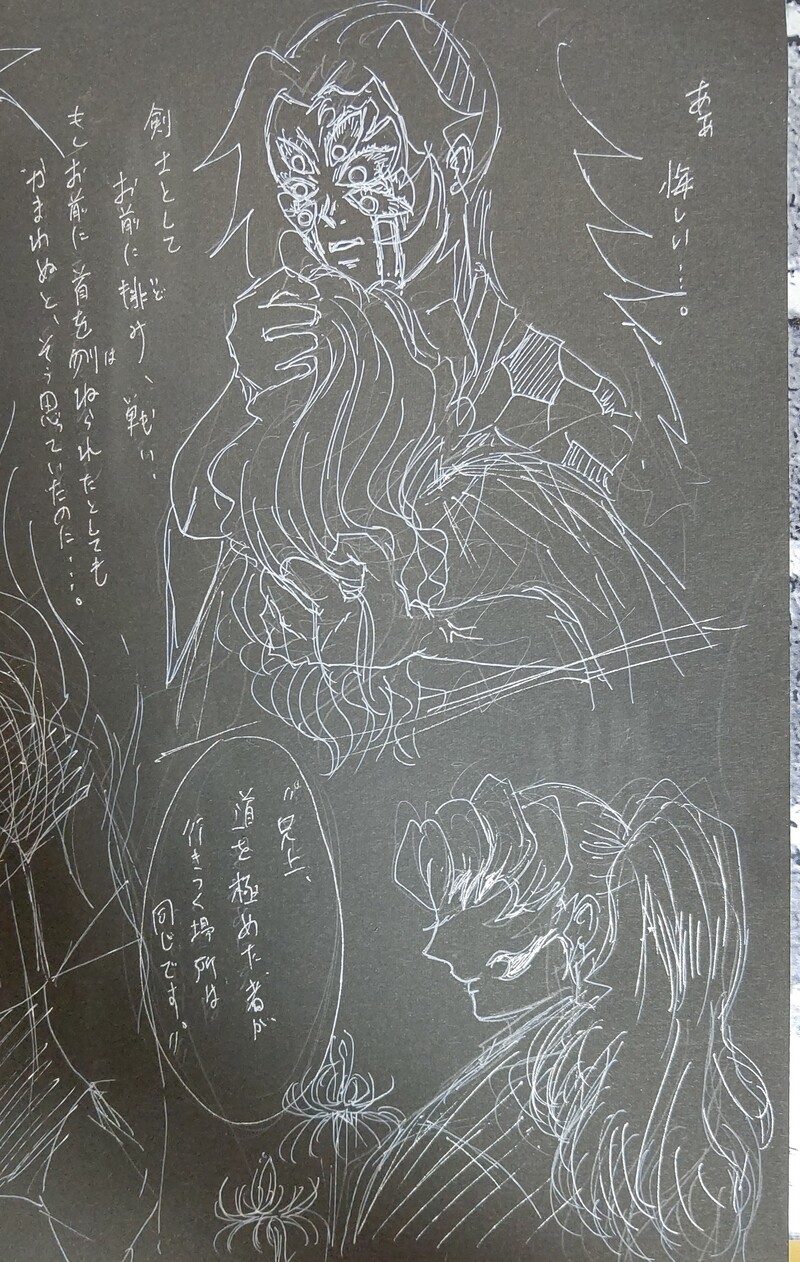 あぁ
悔しい…。
剣士として
お前に挑み、戦い、
もしお前に首を刎ねられたとしても
かまわぬと、そう思っていたのに…。
"兄上、
道を極めた者が
行きつく場所は
同じです。"